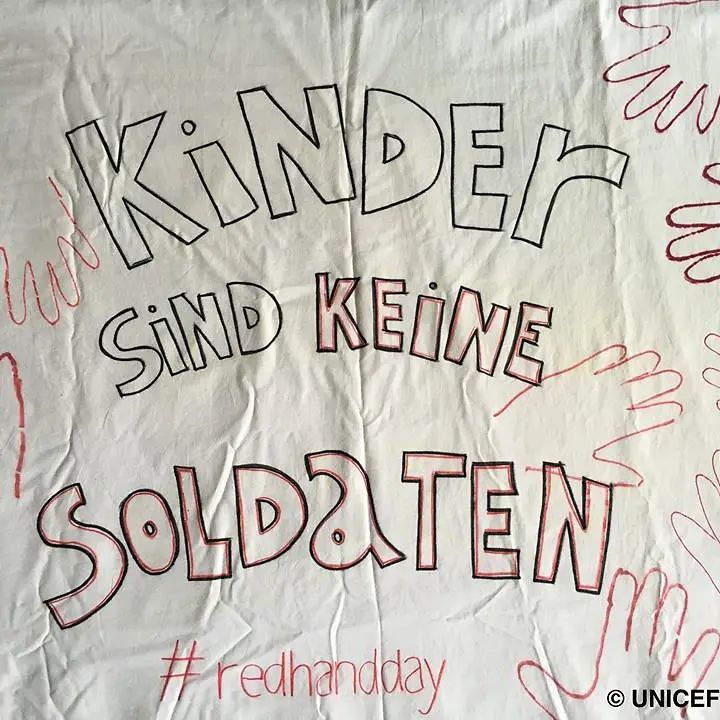 KiNDEr
SiND KEiNE
SOLDaTEN
#redhandday
© UNICEF